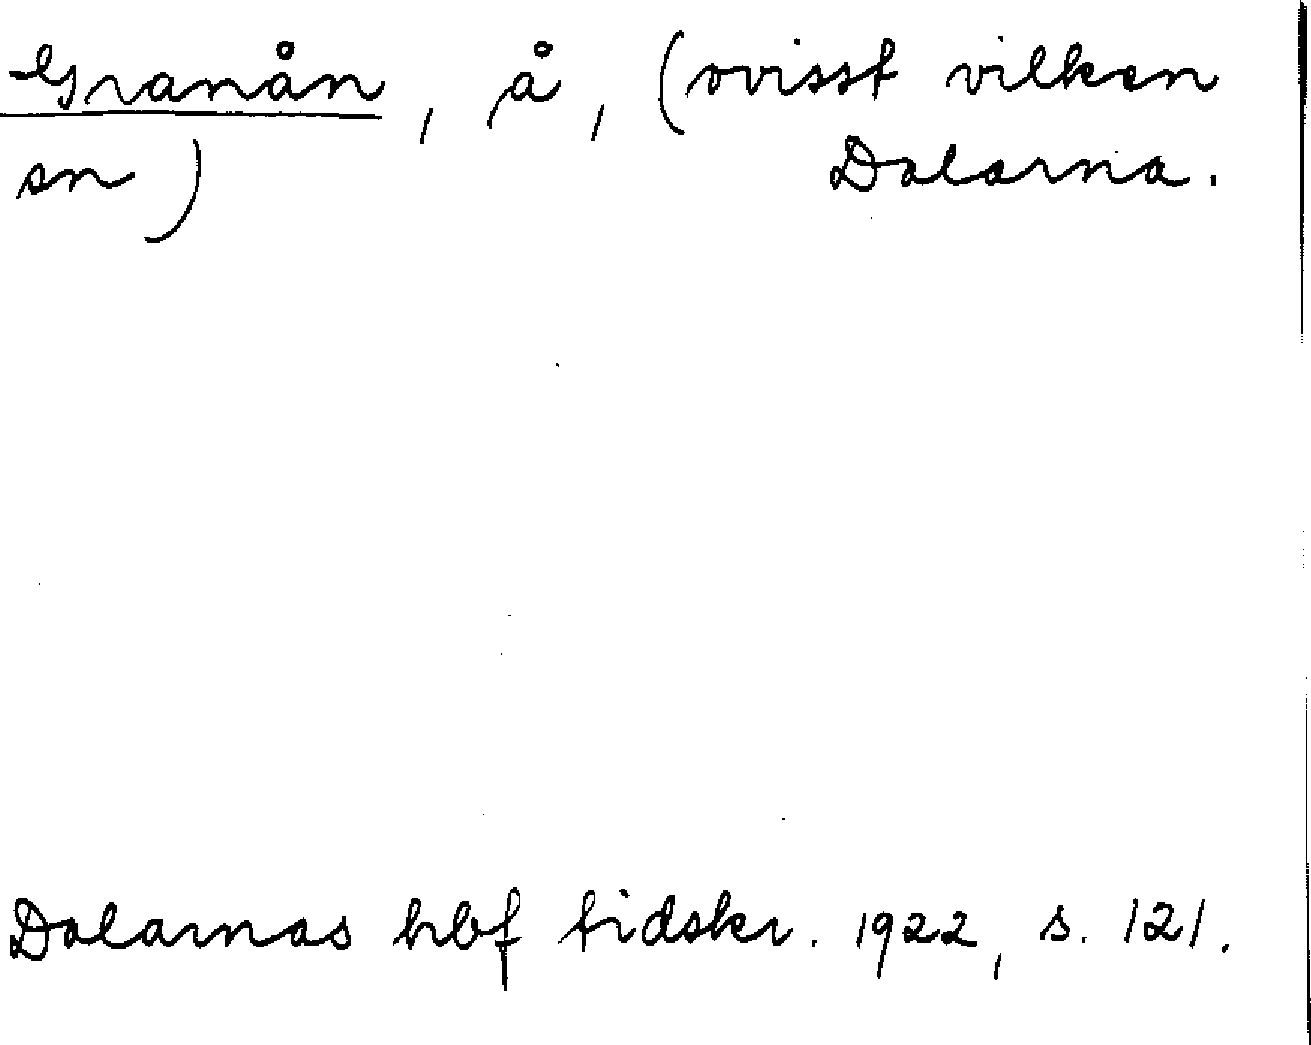 Granån, å, (ovisst vilken
sn) Dalarna.
Dalarnas hbf tidskr. 1922, s. 121.